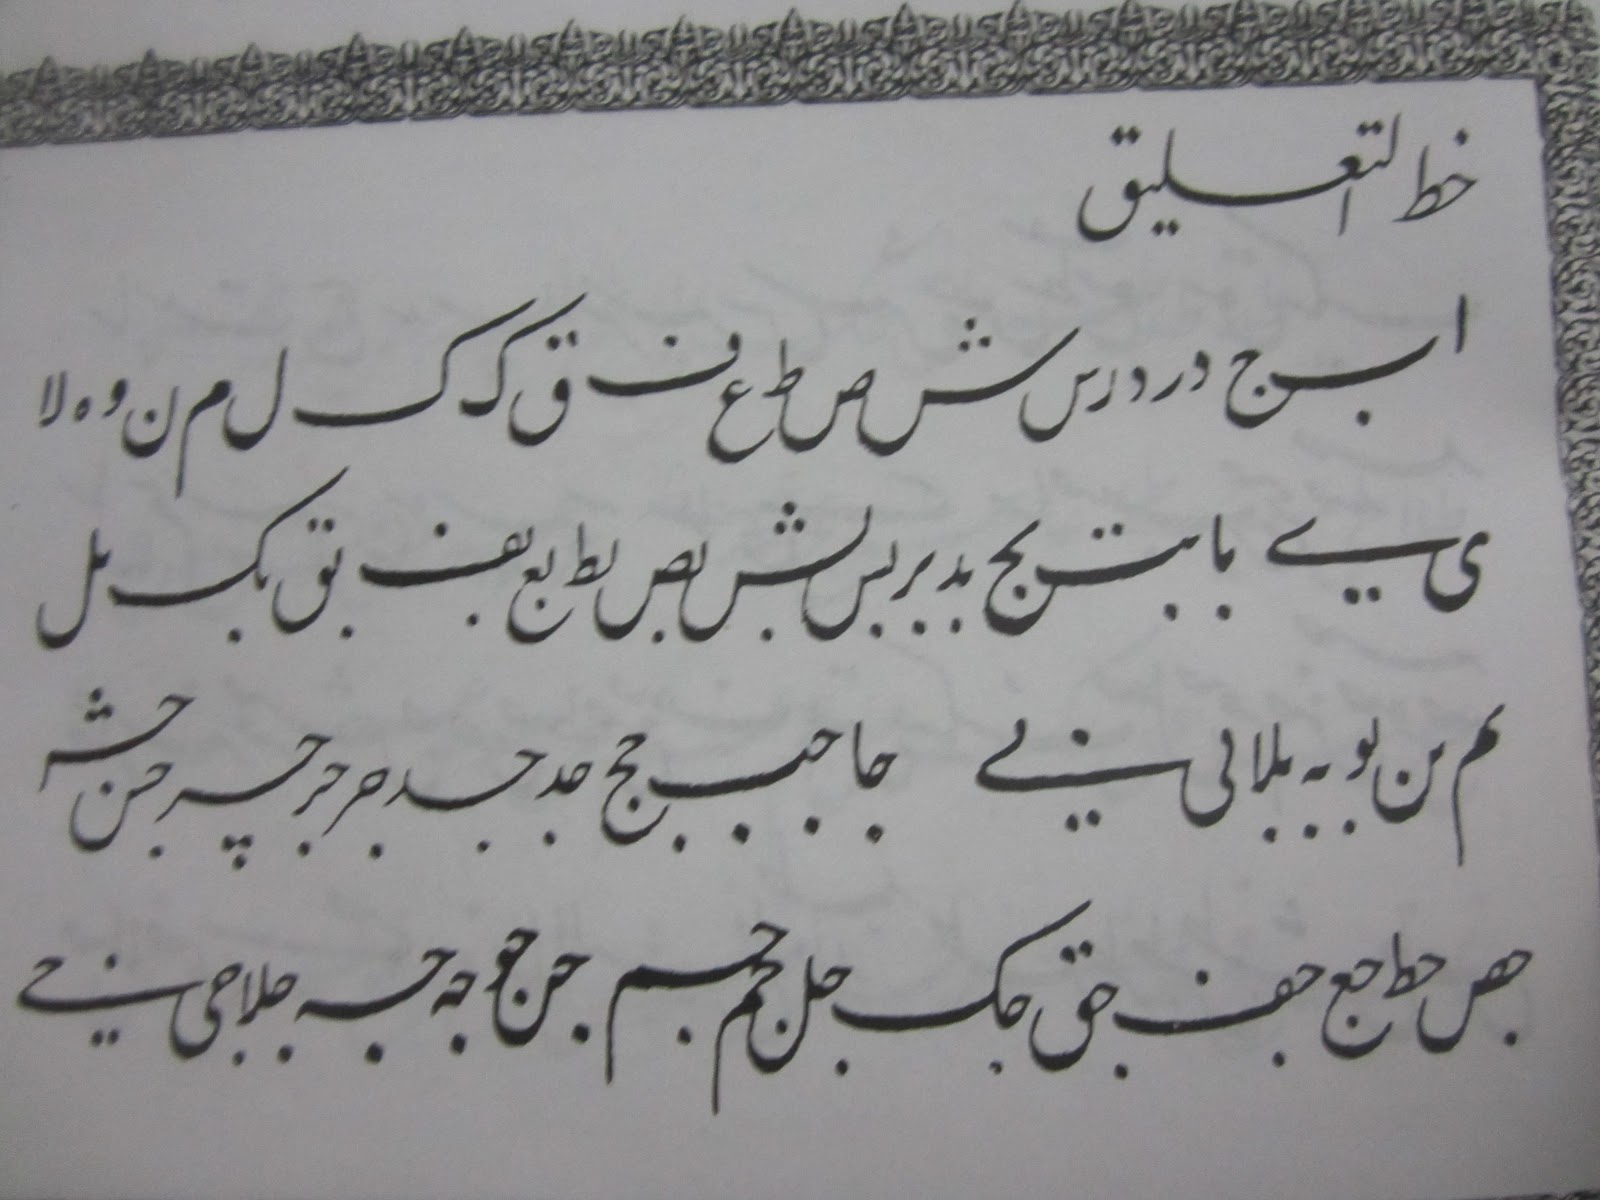 خط التعليق
ا ب ج د ر د ر س ش ص ط ع ف ق ك ك ل م ن و ه لا
ى يے با بت بج بد بر بس بش بص بط بع بف بق بك بل
بم بن بو به بلا بى نيے جا جب جج جد جد جر جر چر جس جش
جص جط جع جف جق جك جل جم جم جن جو جه جه جلا جى جنيے